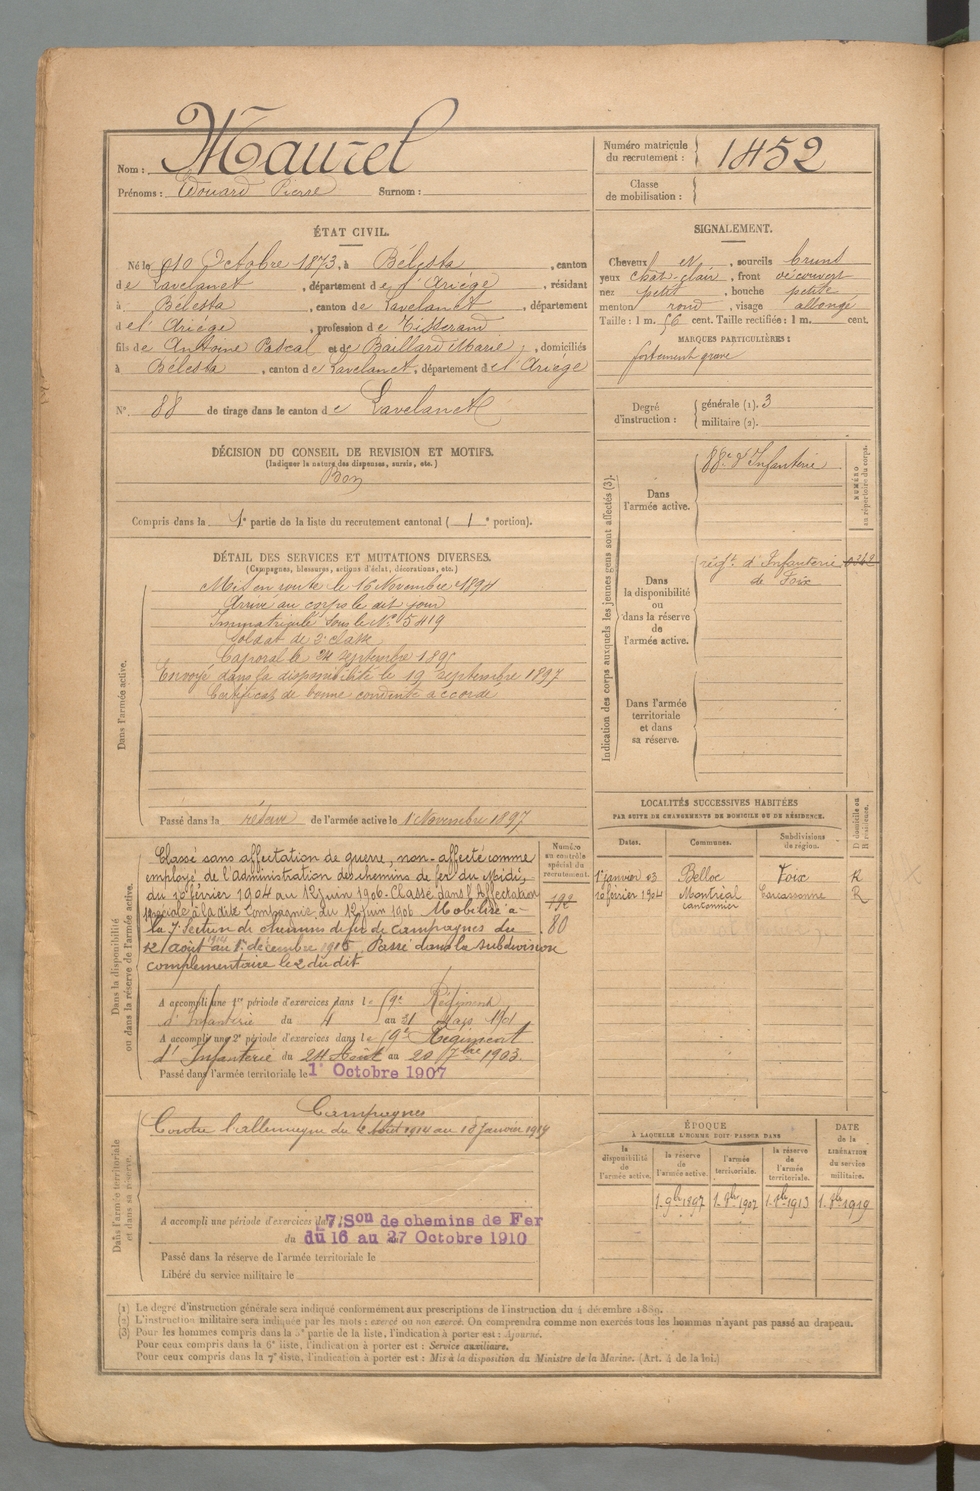 Nom : Maurel
Prénoms : Edouard Pierre Surnom :
Numéro matricule du recrutement : 1452
Classe de mobilisation :
ÉTAT CIVIL.
Né le 10 Octobre 1873, à Bélesta, canton
de Lavelanet, département de l'Ariège, résidant
à Bélesta, canton de Lavelanet, département
de l'Ariège, profession de Tisserand
fils de Antoine Pascal et de Baillard Marie, domiciliés
à Bélesta, canton de Lavelanet, département de l'Ariège
N° 88 de tirage dans le canton de Lavelanet
SIGNALEMENT.
Cheveux et, sourcils bruns
yeux chat. clair, front découvert
nez petit, bouche petite
menton rond, visage allongé
Taille : 1 m. 56 cent. Taille rectifiée : 1 m. cent.
MARQUES PARTICULIÈRES :
fortement gravé
Degré d'instruction : générale (1). 3
militaire (2).
DÉCISION DU CONSEIL DE REVISION ET MOTIFS.
(Indiquer la nature des dispenses, sursis, etc.)
Bon
Compris dans la 1e partie de la liste du recrutement cantonal ( 1e portion).
DÉTAIL DES SERVICES ET MUTATIONS DIVERSES.
(Campagnes, blessures, actions d'éclat, décorations, etc.)
Dans l'armée active.
Mis en route le 16 Novembre 1894
Arrivé au corps le dit jour
Immatriculé sous le N° 5419
Soldat de 2e classe
Caporal le 24 septembre 1895
Envoyé dans la disponibilité le 19 septembre 1897
Certificat de bonne conduite accordé
Passé dans la réserve de l'armée active le 1 Novembre 1897
Indication des corps auxquels les jeunes gens sont affectés (3).
NUMÉRO au répertoire du corps.
Dans l'armée active.
88e d'Infanterie
Dans la disponibilité ou dans la réserve de l'armée active.
régt. d'Infanterie
de Foix
Dans l'armée territoriale et dans sa réserve.
Dans la disponibilité ou dans la réserve de l'armée active.
Numéro au contrôle spécial du recrutement.
Classé sans affectation de guerre, non-affecté comme
employé de l'administration des chemins de fer du Midi,
du 10 février 1904 au 12 juin 1906. Classé dans l'Affectation
spéciale à la dite Compagnie du 12 juin 1906. Mobilisé à
la 7e section de chemins de fer de campagnes du
12 août 1914 au 1e décembre 1915. Passé dans la subdivision
complémentaire le 2 du dit.
80
A accompli une 1re période d'exercices dans le 59e Régiment
d'Infanterie du 4 au 31 Mars 1901
A accompli une 2e période d'exercices dans le 59e Régiment
d'Infanterie du 24 Août au 20 7bre 1903.
Passé dans l'armée territoriale le 1r Octobre 1907
LOCALITÉS SUCCESSIVES HABITÉES
PAR SUITE DE CHANGEMENTS DE DOMICILE OU DE RÉSIDENCE.
D domicile ou R résidence.
Dates. Communes. Subdivisions de région.
1er janvier 03 Belloc Foix R
10 février 1904 Montréal Carcassonne R
cantonnier
Dans l'armée territoriale et dans sa réserve.
Campagnes
Contre l'allemagne du 2 Août 1914 au 18 Janvier 1919
A accompli une période d'exercices da 7.Son de chemins de Fer
du du 16 au 27 Octobre 1910
Passé dans la réserve de l'armée territoriale le
Libéré du service militaire le
ÉPOQUE
À LAQUELLE L'HOMME DOIT PASSER DANS
DATE de la LIBÉRATION du service militaire.
la disponibilité de l'armée active.
la réserve de l'armée active.
l'armée territoriale.
la réserve de l'armée territoriale.
1. 9bre 1897
1. 8bre 1907
1. 8bre 1913
1. 8bre 1919
(1) Le degré d'instruction générale sera indiqué conformément aux prescriptions de l'instruction du 4 décembre 1889.
(2) L'instruction militaire sera indiquée par les mots : exercé ou non exercé. On comprendra comme non exercés tous les hommes n'ayant pas passé au drapeau.
(3) Pour les hommes compris dans la 5e partie de la liste, l'indication à porter est : Ajourné.
Pour ceux compris dans la 6e liste, l'indication à porter est : Service auxiliaire.
Pour ceux compris dans la 7e liste, l'indication à porter est : Mis à la disposition du Ministre de la Marine. (Art. 4 de la loi.)